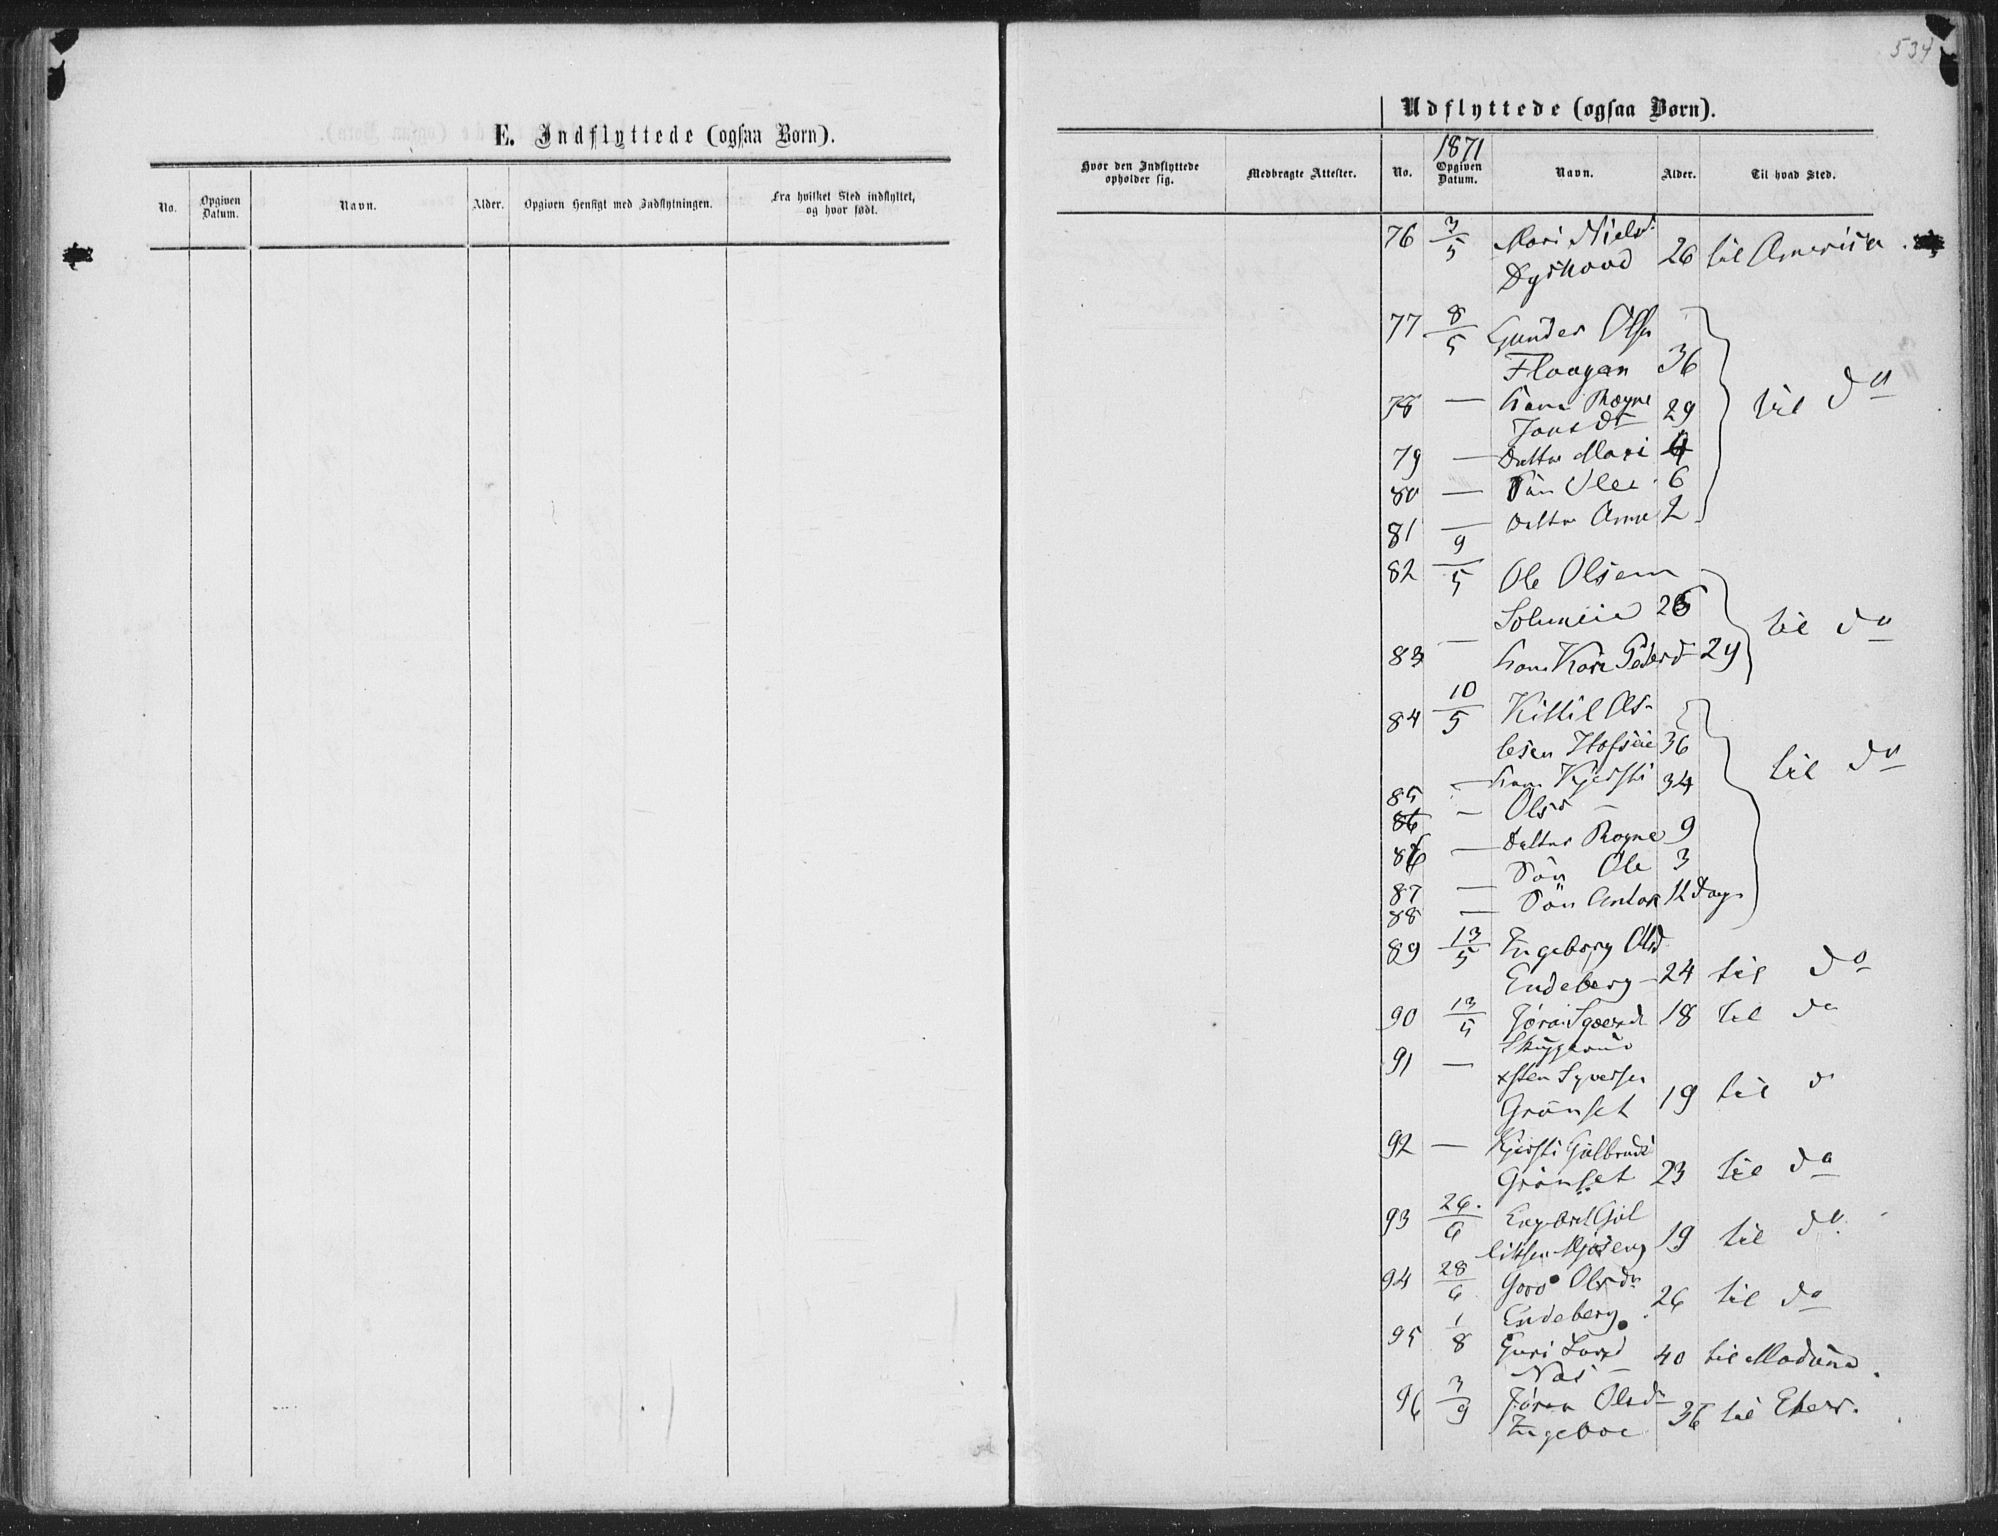 534
E. Indflyttede (ogsaa Børn).
No.
Opgiven Datum.
Navn.
Alder.
Opgiven Hensigt med Indflytningen.
Fra hvilket Sted indflyttet, og hvor født.
Udflyttede (ogsaa Børn).
Hvor den Indflyttede opholder sig.
Medbragte Attester.
No.
1871
Opgiven Datum.
Navn.
Alder.
Til hvad Sted.
76 3/5 Mari Nielsd.
26 til America.
77 8/5 Gunder Olsen
Flaagan 36
til do
78 — Kone Ragne
Jonsdt 29
79 — Datter Mari 4
80 — Søn Ole 6
81 — Datter Anne 2
82 9/5 Ole Olsen
til do
83 — Kone Kari Pedersd 29
84 10/5 Kittil Ols-
36
til do
85 — Kone Kjersti 34
86 — Olsd —
86 — Datter Ragne 9
87 — Søn Ole 3
88 — Søn Anton 12 Dage
89 13/5 Ingeborg Olsd
Endeberg 24 til do
90 13/5 18 til do
91 — Sten Syversen
Grønset 19 til do
92 — Kjersti Gulbrands
Grønset 23 til do
93 26/6 Engebret Gul
19 til do
94 28/6 Goro Olsdr
Endeberg 26 til do
95 1/8 Guri Larsd
Næs 40 til Modum.
96 3/9 Jøran Olsdr
36 til Eker.